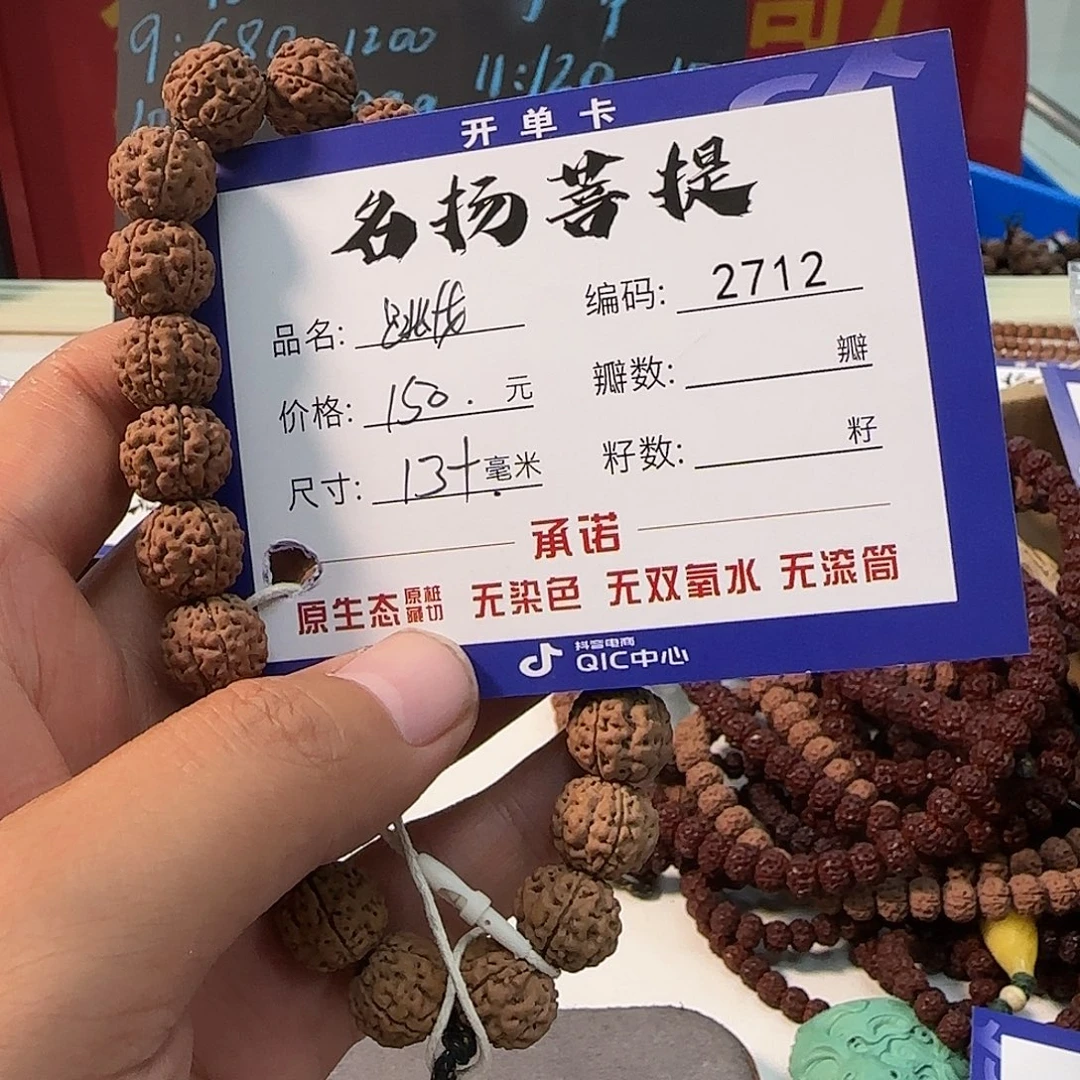 9:680 1200
11:120
开单卡
名扬菩提
品名:
编码: 2712
价格: 150. 元
瓣数: 瓣
尺寸: 13+ 毫米
籽数: 籽
承诺
原生态 原桩 藏切 无染色 无双氧水 无滚筒
抖音电商
QIC中心